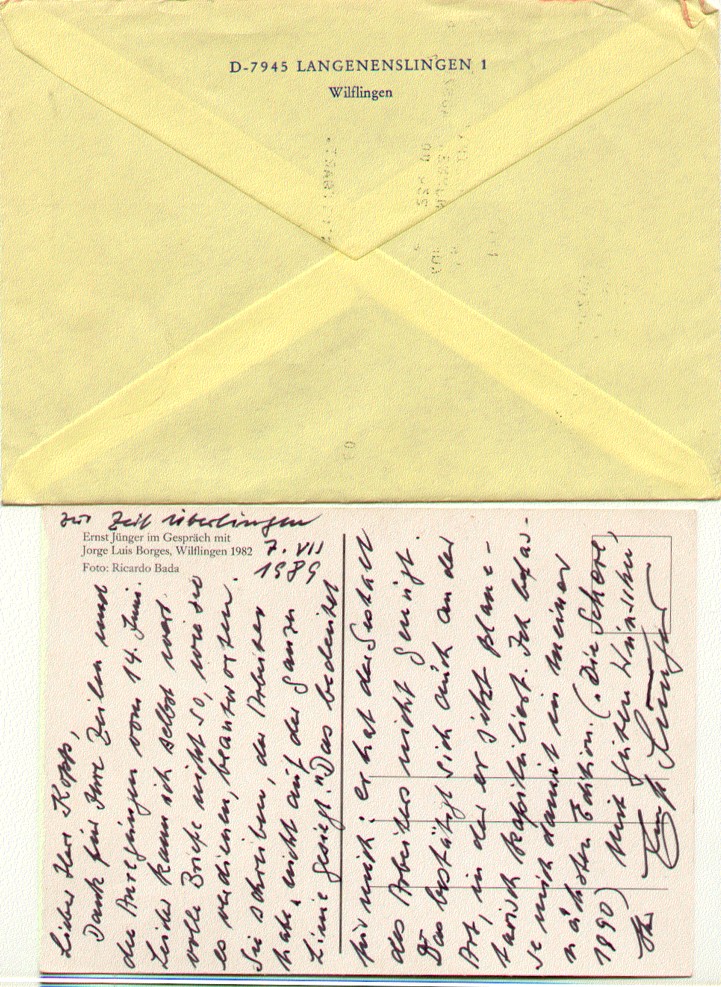 D-7945 LANGENENSLINGEN 1
Wilflingen
zur Zeit Überlingen
Ernst Jünger im Gespräch mit
Jorge Luis Borges, Wilflingen 1982
Foto: Ricardo Bada
7. VII
1989
Lieber Herr Kopp,
Dank für Ihre Zeilen und
die Anregungen vom 14. Juni.
Leider kann ich selbst wert-
volle Briefe nicht so, wie sie
es verdienen, beantworten.
Sie schreiben, der Arbeiter
habe "nicht auf der ganzen
Linie gesiegt." Das bedeutet
für mich: er hat der Gestalt
des Arbeiters nicht genügt.
Das bestätigt sich auch an der
Art, in der er jetzt plane-
tarisch kapituliert. Ich befas-
se mich damit in meiner
nächsten Edition. ("Die Schere",
1990) Mit guten Wünschen
Ihr Ernst Jünger